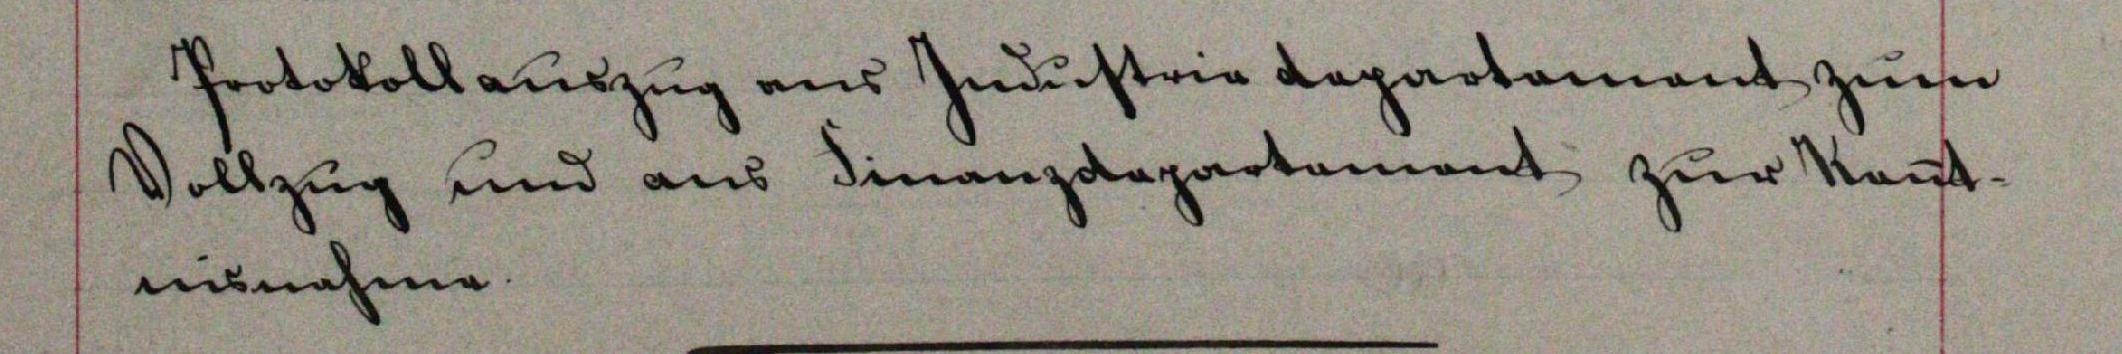 Protokollauszug ans Industriedepartement zum
Vollzug und ans Finanzdepartement zur Ken̅t-
nisnahme.